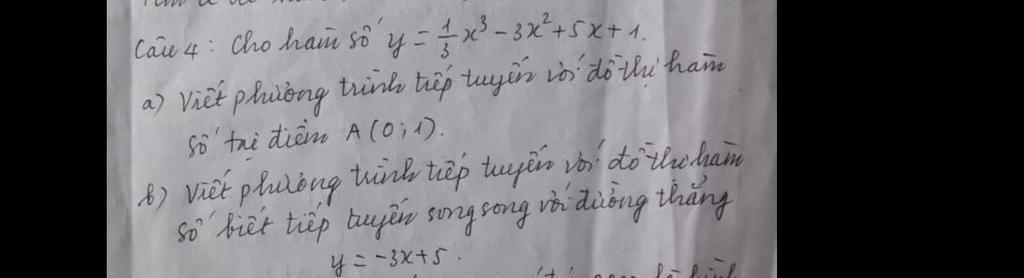 Câu 4: Cho hàm số y = 1/3 x³ - 3x² + 5x + 1.
a) Viết phương trình tiếp tuyến với đồ thị hàm
số tại điểm A(0;1).
b) Viết phương trình tiếp tuyến với đồ thị hàm
số biết tiếp tuyến song song với đường thẳng
y = -3x+5.